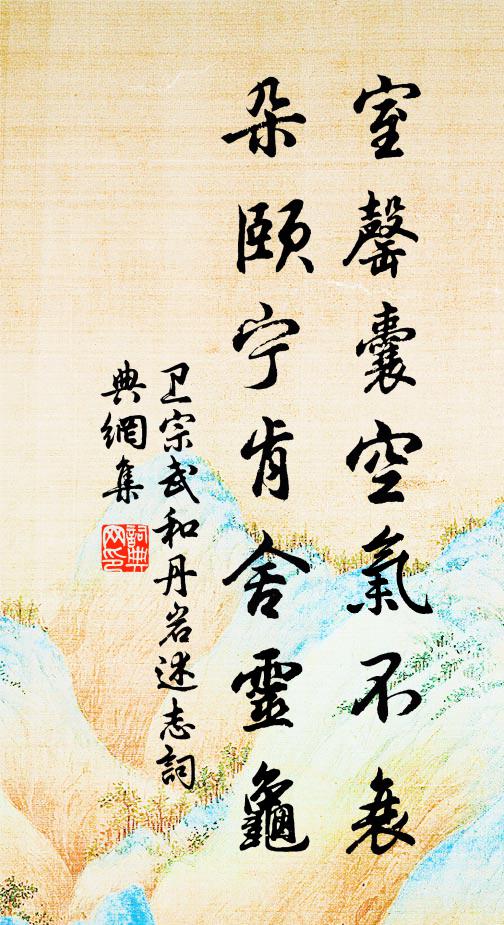 室罄囊空氣不衰
朵頤宁肯舍靈龜
卫宗武和丹岩述志詞
典網集
詞典网印